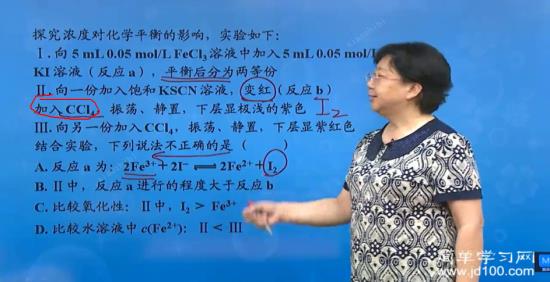 探究浓度对化学平衡的影响，实验如下：
Ⅰ.向 5 mL 0.05 mol/L FeCl₃溶液中加入 5 mL 0.05 mol/L
KI 溶液（反应 a），平衡后分为两等份
Ⅱ.向一份加入饱和 KSCN 溶液，变红（反应 b）
加入 CCl₄，振荡、静置，下层显极浅的紫色 I₂
Ⅲ.向另一份加入CCl₄，振荡、静置，下层显紫红色
结合实验，下列说法不正确的是（ ）
A. 反应 a 为：2Fe³⁺+2I⁻ ⇌ 2Fe²⁺+I₂
B. Ⅱ中，反应 a 进行的程度大于反应 b
C. 比较氧化性：Ⅱ中，I₂ > Fe³⁺
D. 比较水溶液中 c(Fe²⁺)：Ⅱ < Ⅲ
简单学习网
www.jd100.com